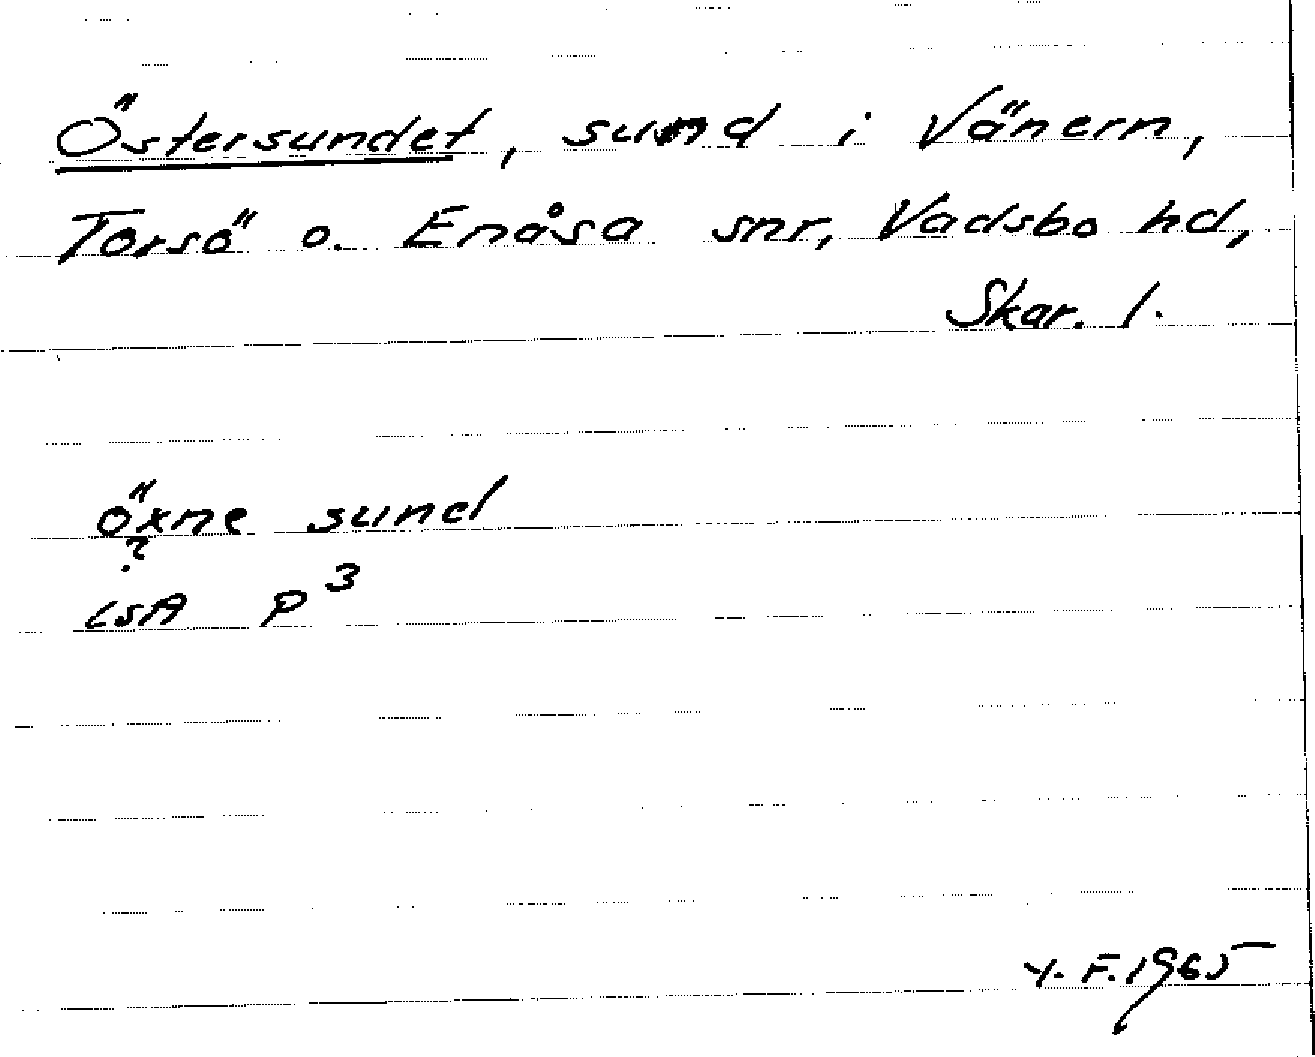 Östersundet, sund i Vänern,
Torsö o. Enåsa snr, Vadsbo hd,
Skar. l.
öxne sund
?
LSA P 3
Y. F. 1965